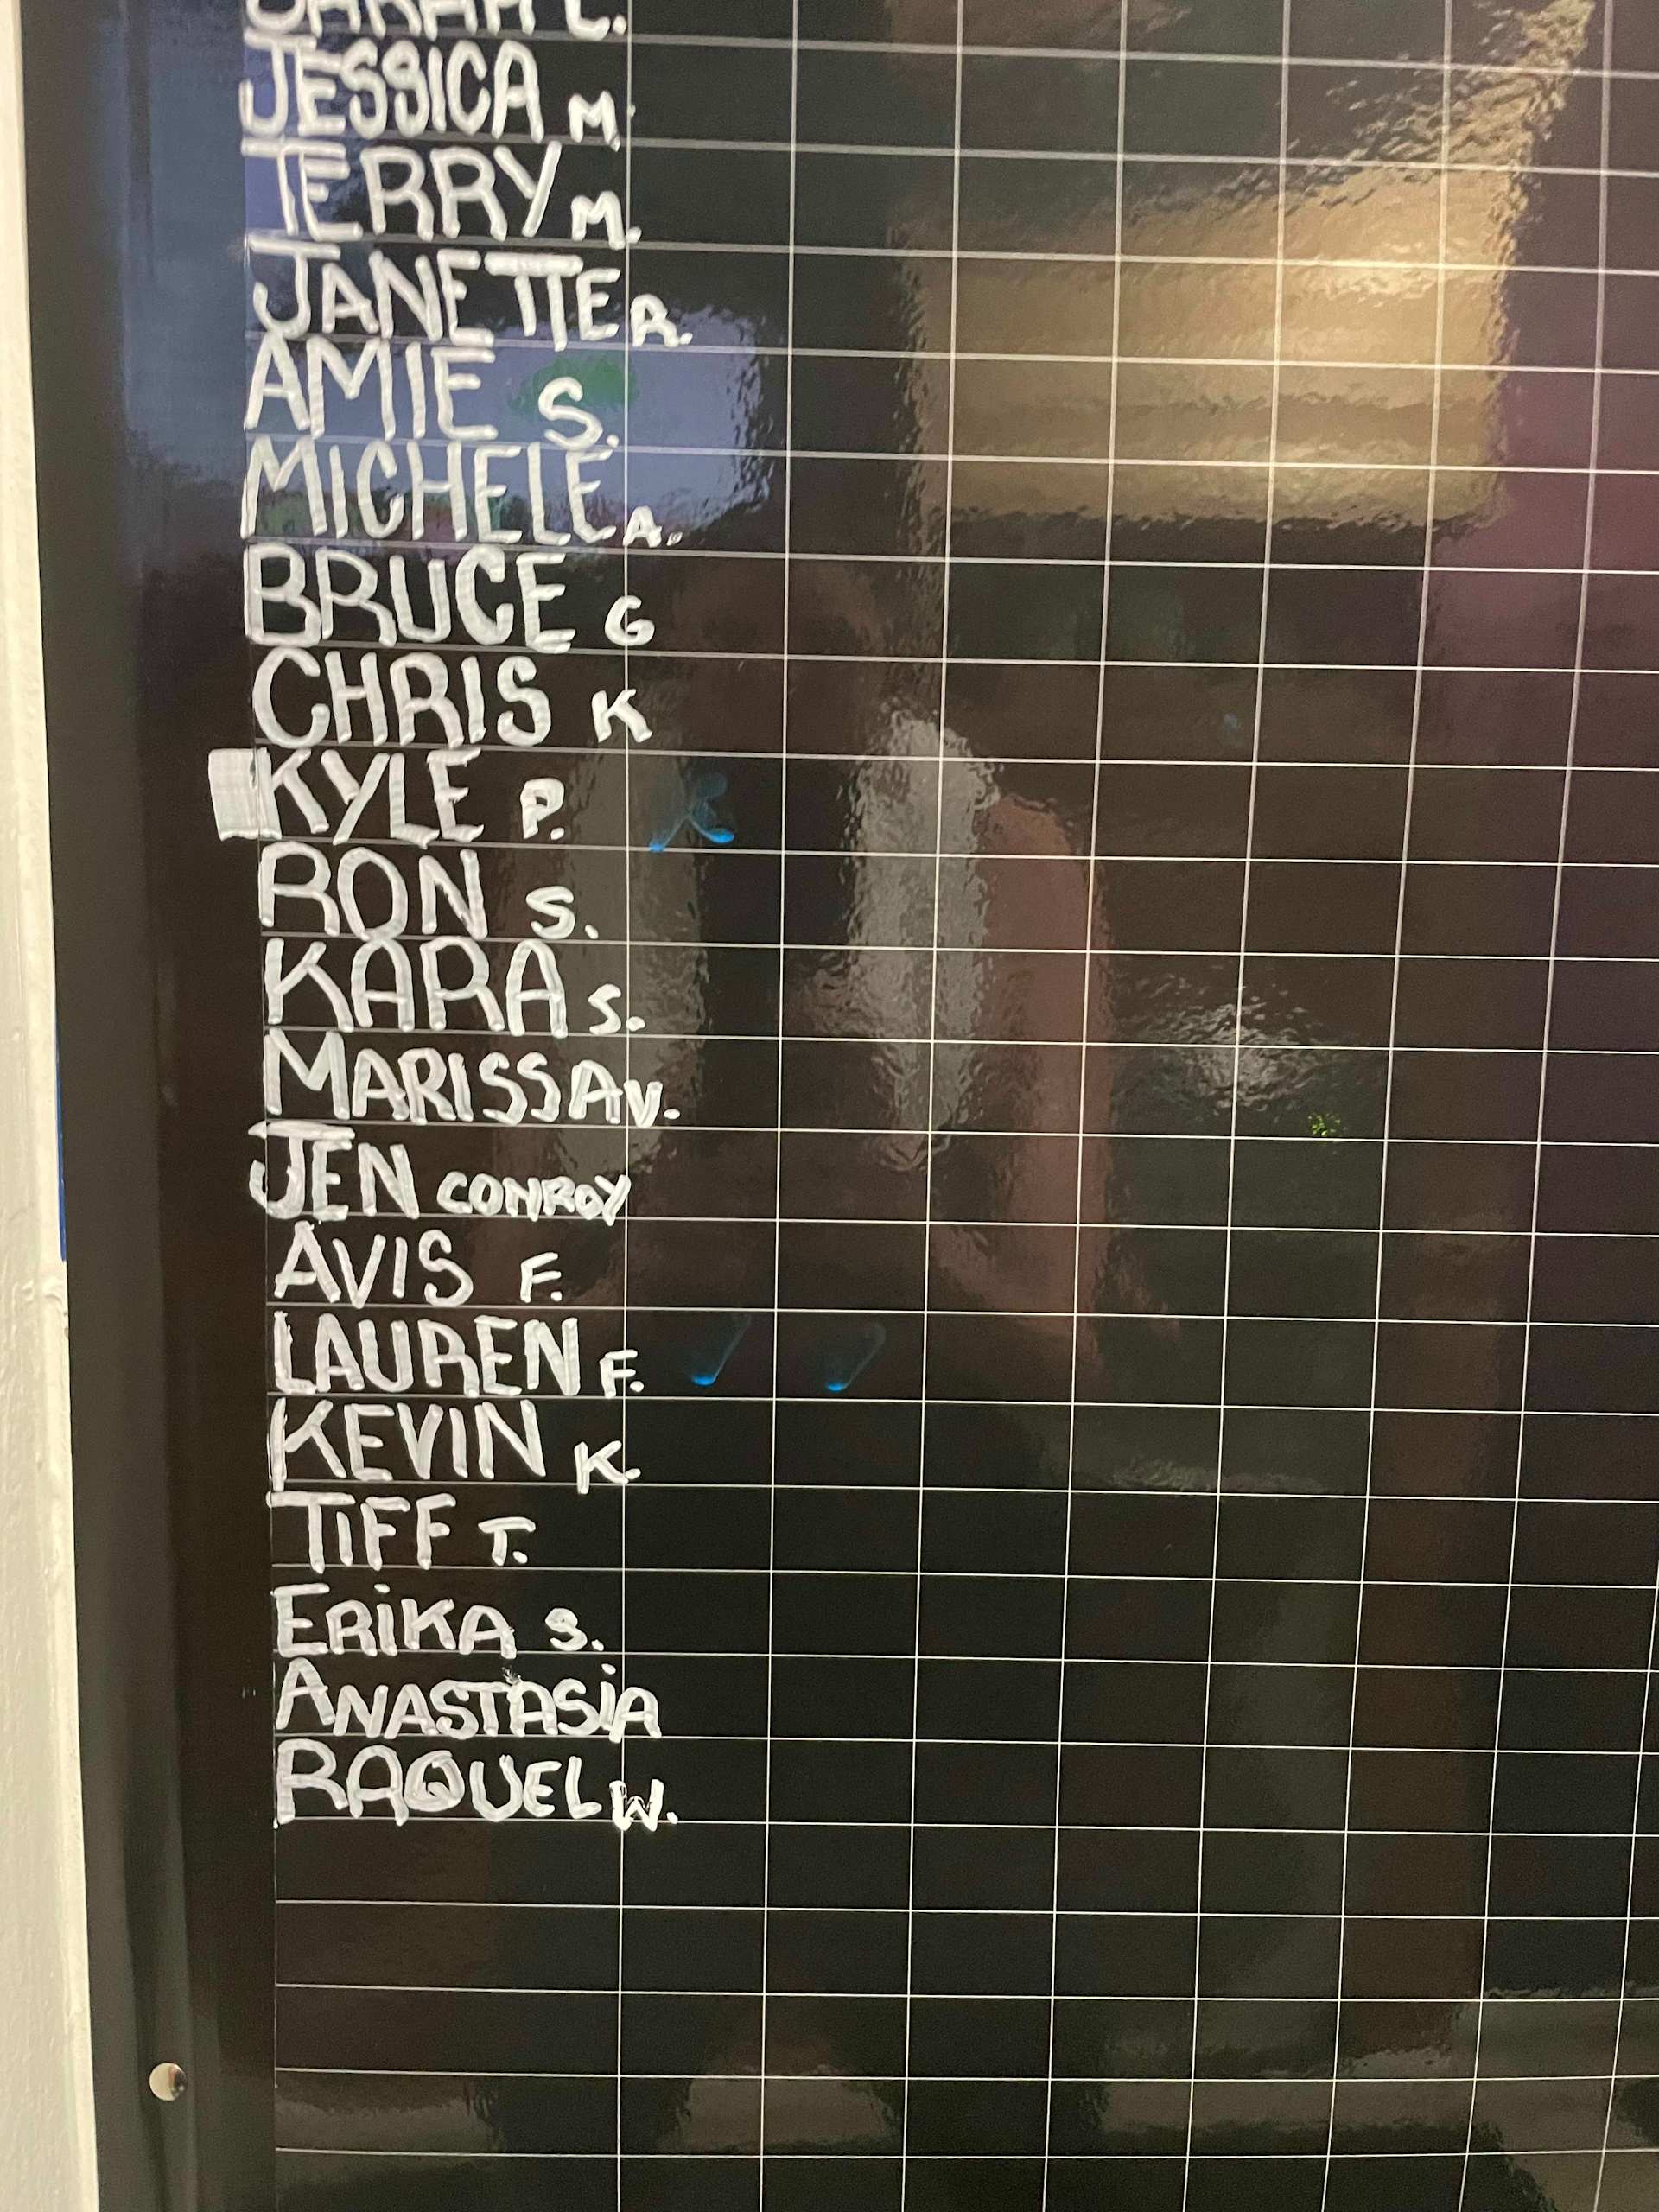 SARAH L.
JESSICA M.
TERRY M.
JANETTE R.
AMIE S.
MICHELE A.
BRUCE G
CHRIS K
KYLE P.
RON S.
KARA S.
MARISSA V.
JEN CONROY
AVIS F.
LAUREN F.
KEVIN K.
TIFF T.
ERiKA S.
ANASTASiA
RAQUEL W.